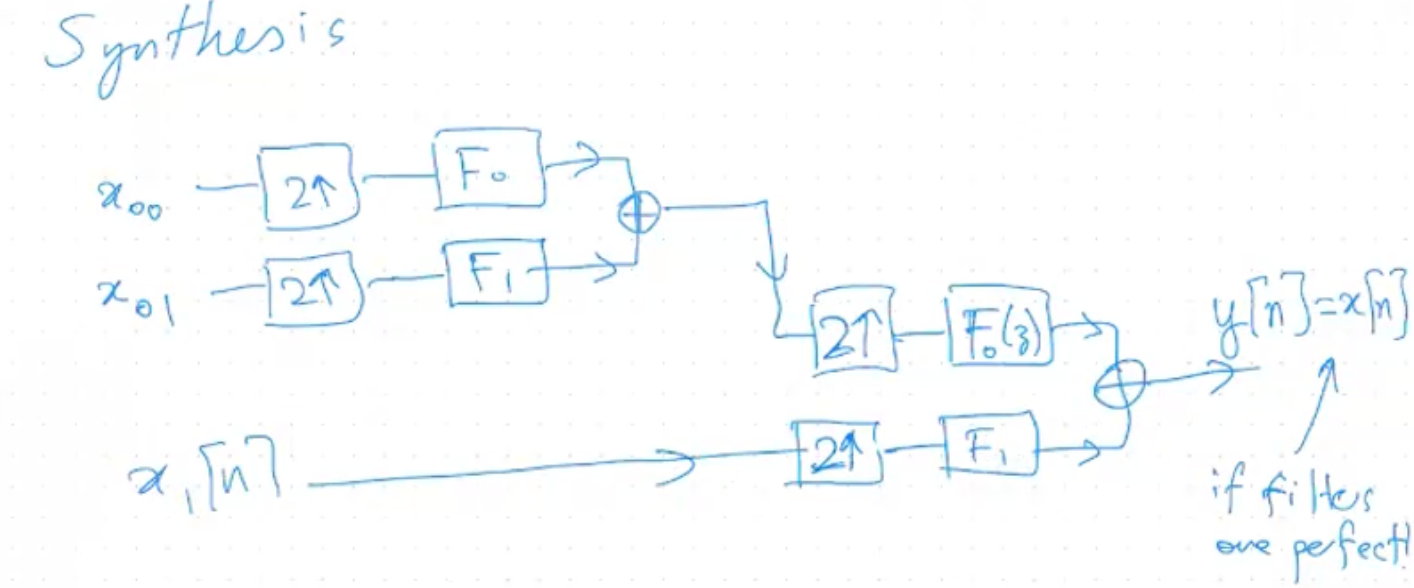 Synthesis
x₀₀ 2↑ F₀
x₀₁ 2↑ F₁
2↑ F₀(z) y[n]=x[n]
x₁[n] 2↑ F₁
if filters
are perfect!